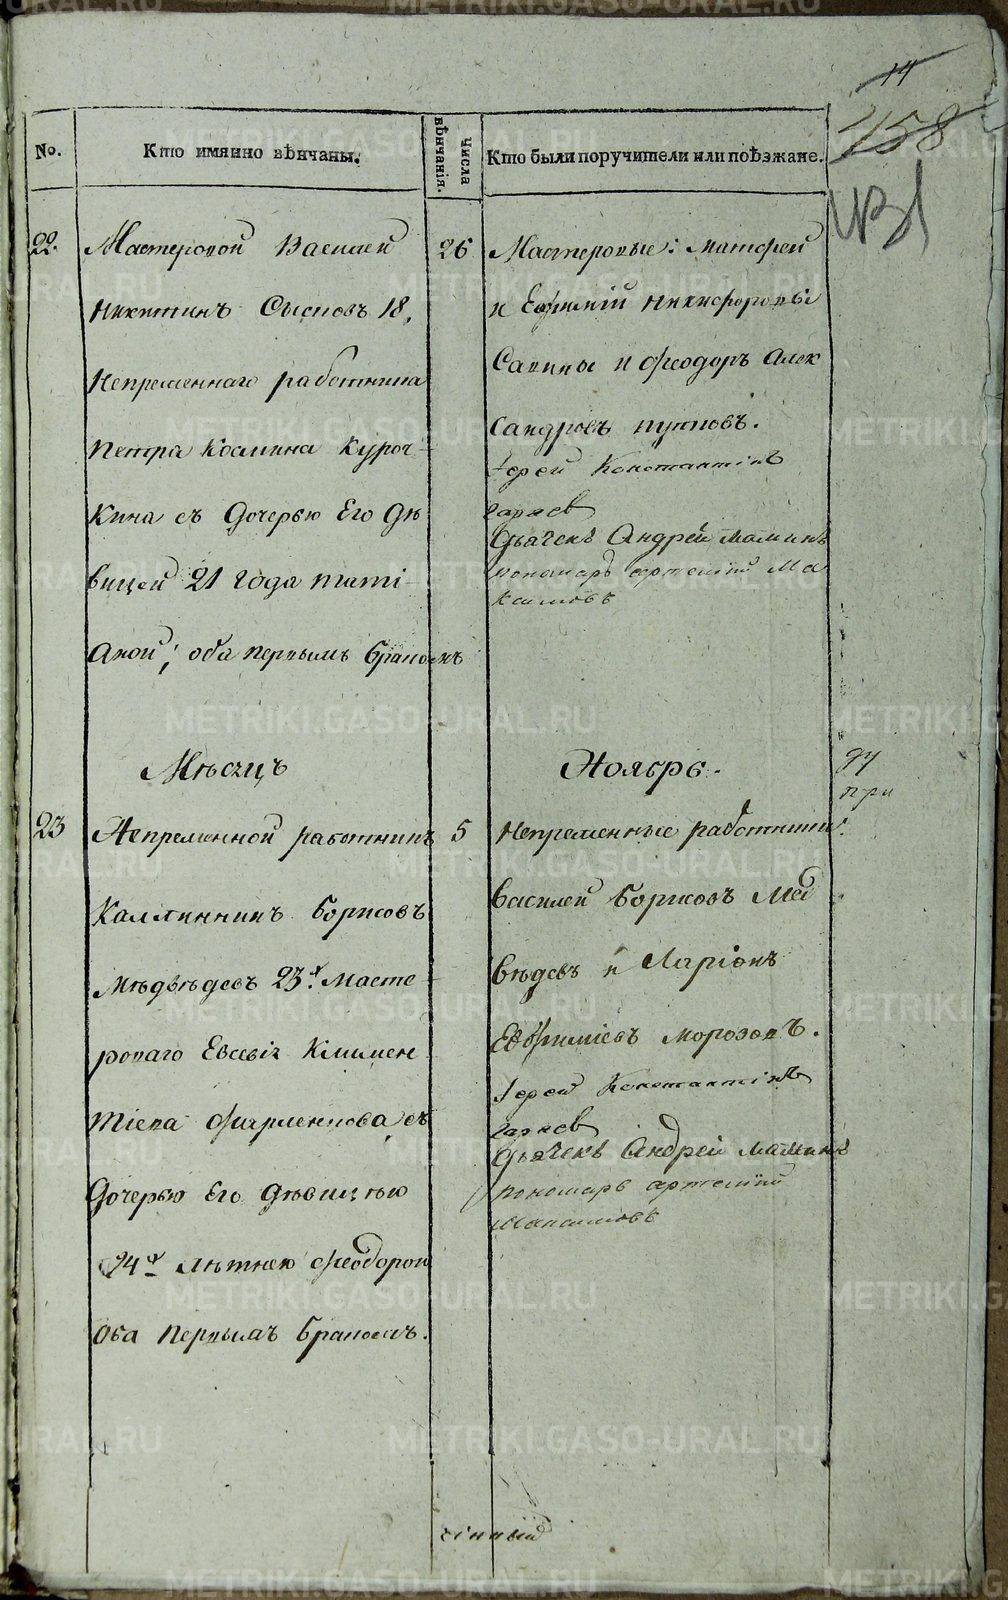 14
458
No.
Кто имянно вѣнчаны.
Числа вѣнчанія.
Кто были поручители или поѣзжане.
22.
Мастеровой Василей
Никитинъ Сысоевъ 18,
Непременнаго работника
Петра Космина Куроч
кина съ Дочерью Его Дѣ
вицей 21 года Тати
Аной; оба первымъ бракомъ
26
Мастеровые: Матфей
и Ефимій Никифоровы
Савины и Феодоръ Алек
сандровъ путовъ.
Іерей Константінъ
Дьячекъ Андрей Маминъ
пономарь артемий Ма
ксимовъ
Мѣсяцъ
Ноябрь.
23
Непременной работникъ
Каллинникъ Борисовъ
Мѣдвѣдевъ 23х Масте
роваго Евсевія Климен
тіева Фирменкова съ
Дочерью Его дѣвицею
24х лѣтнею Феодорой
Оба первымъ бракомъ.
5
Непременные работники
Василей Борисовъ Мед
вѣдевъ и Ларіонъ
Евфиміевъ Морозовъ.
Іерей Константінъ
Дьячекъ Андрей Маминъ
пономарь артемий
Максимовъ
METRIKI.GASO-URAL.RU